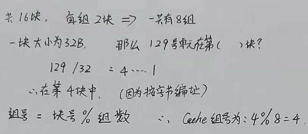 共16块, 每组2块 => 一共有8组
一块大小为32B, 那么129号单元在第( )块?
129 / 32 = 4 ··· 1
∴在第4块中. (因为按字节编址)
组号 = 块号 % 组数 ∴ Cache组号为: 4%8=4